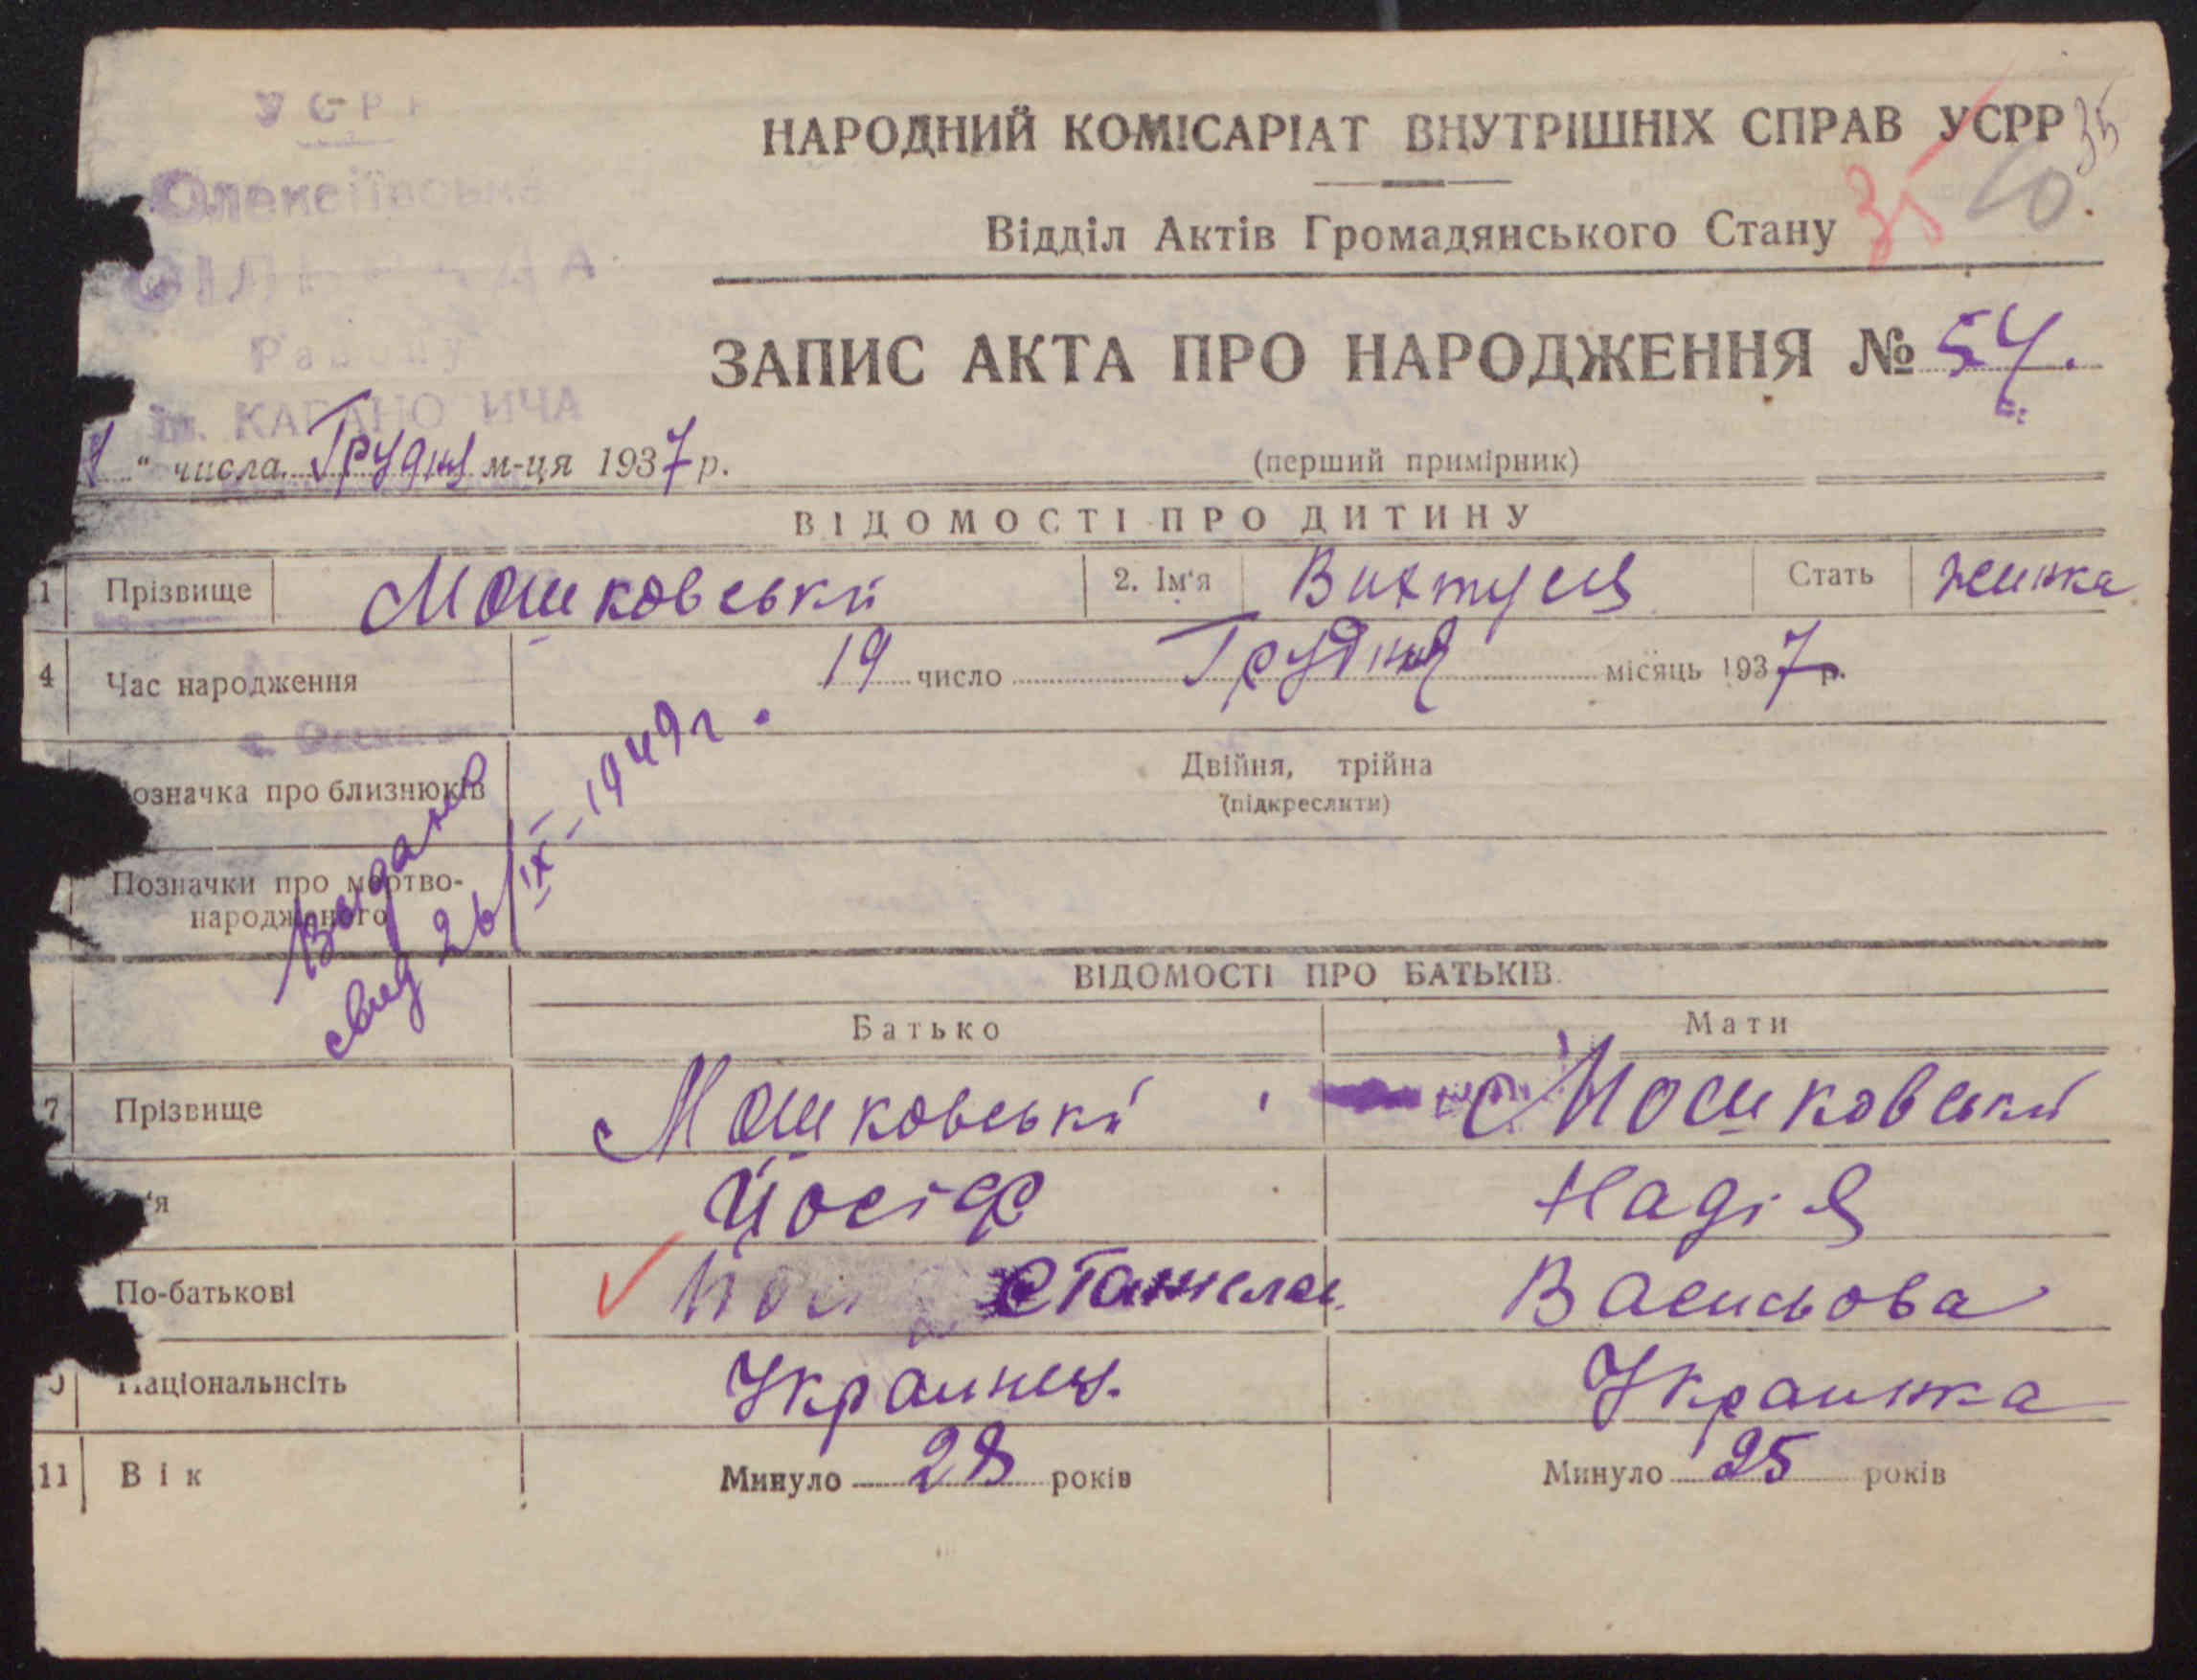 УСРР
Олексіївська
СІЛЬРАДА
Району
ім. КАГАНОВИЧА
НАРОДНИЙ КОМІСАРІАТ ВНУТРІШНІХ СПРАВ УСРР 35
Відділ Актів Громадянського Стану 35 10.
ЗАПИС АКТА ПРО НАРОДЖЕННЯ № 54.
" числа Грудня м-ця 1937 р.
(перший примірник)
ВІДОМОСТІ ПРО ДИТИНУ
1 Прізвище Мошковськи 2. Ім'я Стать жинка
4 Час народження 19 число Грудня місяць 1937 р.
с.
означка про близнюків Двійня, трійна
(підкреслити)
Позначки про мертво-
народженого
Выдано
свид 26/IX-1949 г.
ВІДОМОСТІ ПРО БАТЬКІВ
Батько Мати
7 Прізвище Мошковськи Мошковськи
'я Йосіф Надія
По-батькові Васильова
Національнсіть Украинец. Украинка
11 Вік Минуло 28 років Минуло 25 років